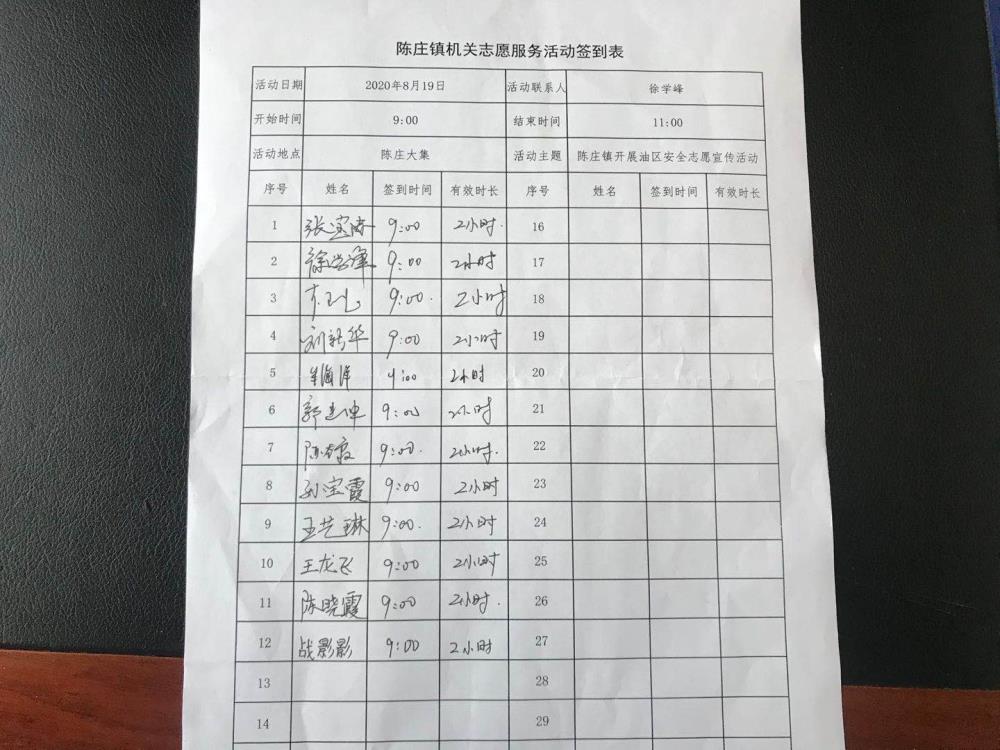 陈庄镇机关志愿服务活动签到表
活动日期 2020年8月19日 活动联系人 徐学峰
开始时间 9:00 结束时间 11:00
活动地点 陈庄大集 活动主题 陈庄镇开展油区安全志愿宣传活动
序号 姓名 签到时间 有效时长 序号 姓名 签到时间 有效时长
1 9:00 2小时. 16
2 徐学峰 9:00 2小时 17
3 9:00. 2小时 18
4 刘新华 9:00 2小时 19
5 海洋 9:00 2小时 20
6 郭建中 9:00 2小时 21
7 9:00. 2小时. 22
8 孙宝霞 9:00 2小时 23
9 王艺琳 9:00. 2小时 24
10 王龙飞 9:00 2小时 25
11 陈晓霞 9:00 2小时. 26
12 战影影 9:00 2小时 27
13 28
14 29